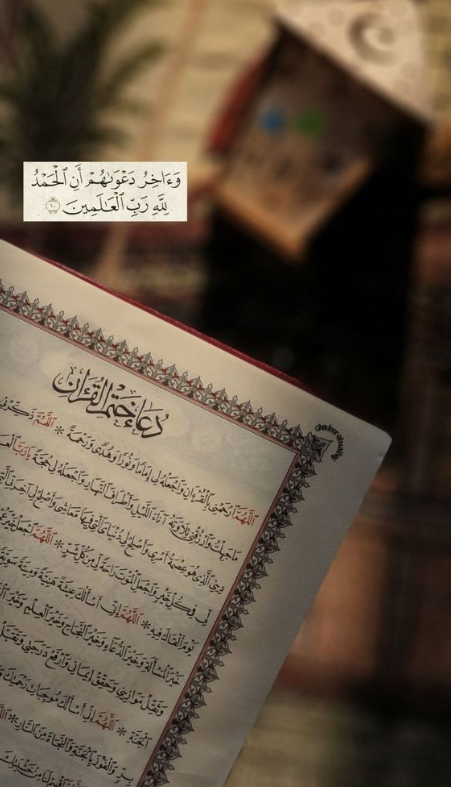 وَءَاخِرُ دَعْوَىٰهُمْ أَنِ ٱلْحَمْدُ
لِلَّهِ رَبِّ ٱلْعَٰلَمِينَ ١٠
دُعَاءُ خَتْمِ الْقُرْآنِ
اللَّهُمَّ ارْحَمْنِي بِالْقُرْآنِ وَاجْعَلْهُ لِي إِمَامًا وَنُورًا وَهُدًى وَرَحْمَةً * اللَّهُمَّ ذَكِّرْنِي
مَا جَهِلْتُ وَارْزُقْنِي تِلَاوَتَهُ آنَاءَ اللَّيْلِ وَأَطْرَافَ النَّهَارِ وَاجْعَلْهُ لِي حُجَّةً يَا رَبَّ
دِينِي الَّذِي هُوَ عِصْمَةُ أَمْرِي وَأَصْلِحْ لِي دُنْيَايَ الَّتِي فِيهَا مَعَاشِي وَأَصْلِحْ لِي آخِرَتِي الَّتِي
لِي فِي كُلِّ خَيْرٍ وَاجْعَلِ الْمَوْتَ رَاحَةً لِي مِنْ كُلِّ شَرٍّ * اللَّهُمَّ اجْعَلْ خَيْرَ
يَوْمَ أَلْقَاكَ فِيهِ * اللَّهُمَّ إِنِّي أَسْأَلُكَ عِيشَةً هَنِيَّةً وَمِيتَةً سَوِيَّةً
خَيْرَ الْمَسْأَلَةِ وَخَيْرَ الدُّعَاءِ وَخَيْرَ النَّجَاحِ وَخَيْرَ الْعِلْمِ وَخَيْرَ
وَثَقِّلْ مَوَازِينِي وَحَقِّقْ إِيمَانِي وَارْفَعْ دَرَجَتِي وَتَقَبَّلْ
الْجَنَّةِ * اللَّهُمَّ إِنِّي أَسْأَلُكَ مُوجِبَاتِ رَحْمَتِكَ
بِرٍّ وَالْفَوْزَ بِالْجَنَّةِ وَالنَّجَاةَ مِنَ النَّارِ *